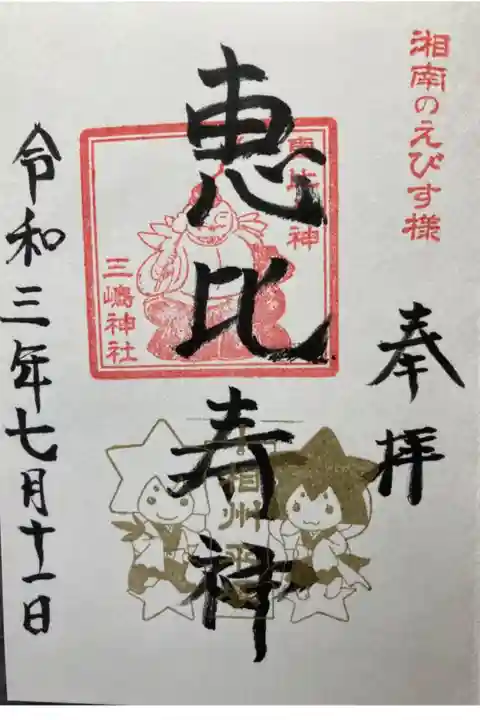 湘南のえびす様
奉拝
恵比寿神
恵比
神
三嶋神社
相州
令和三年七月十一日